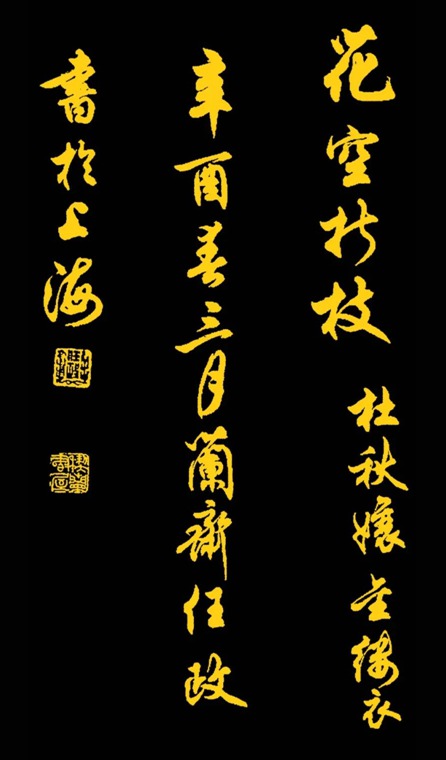 花空折枝 杜秋孃金缕衣
辛酉春三月蘭齋任政
書於上海